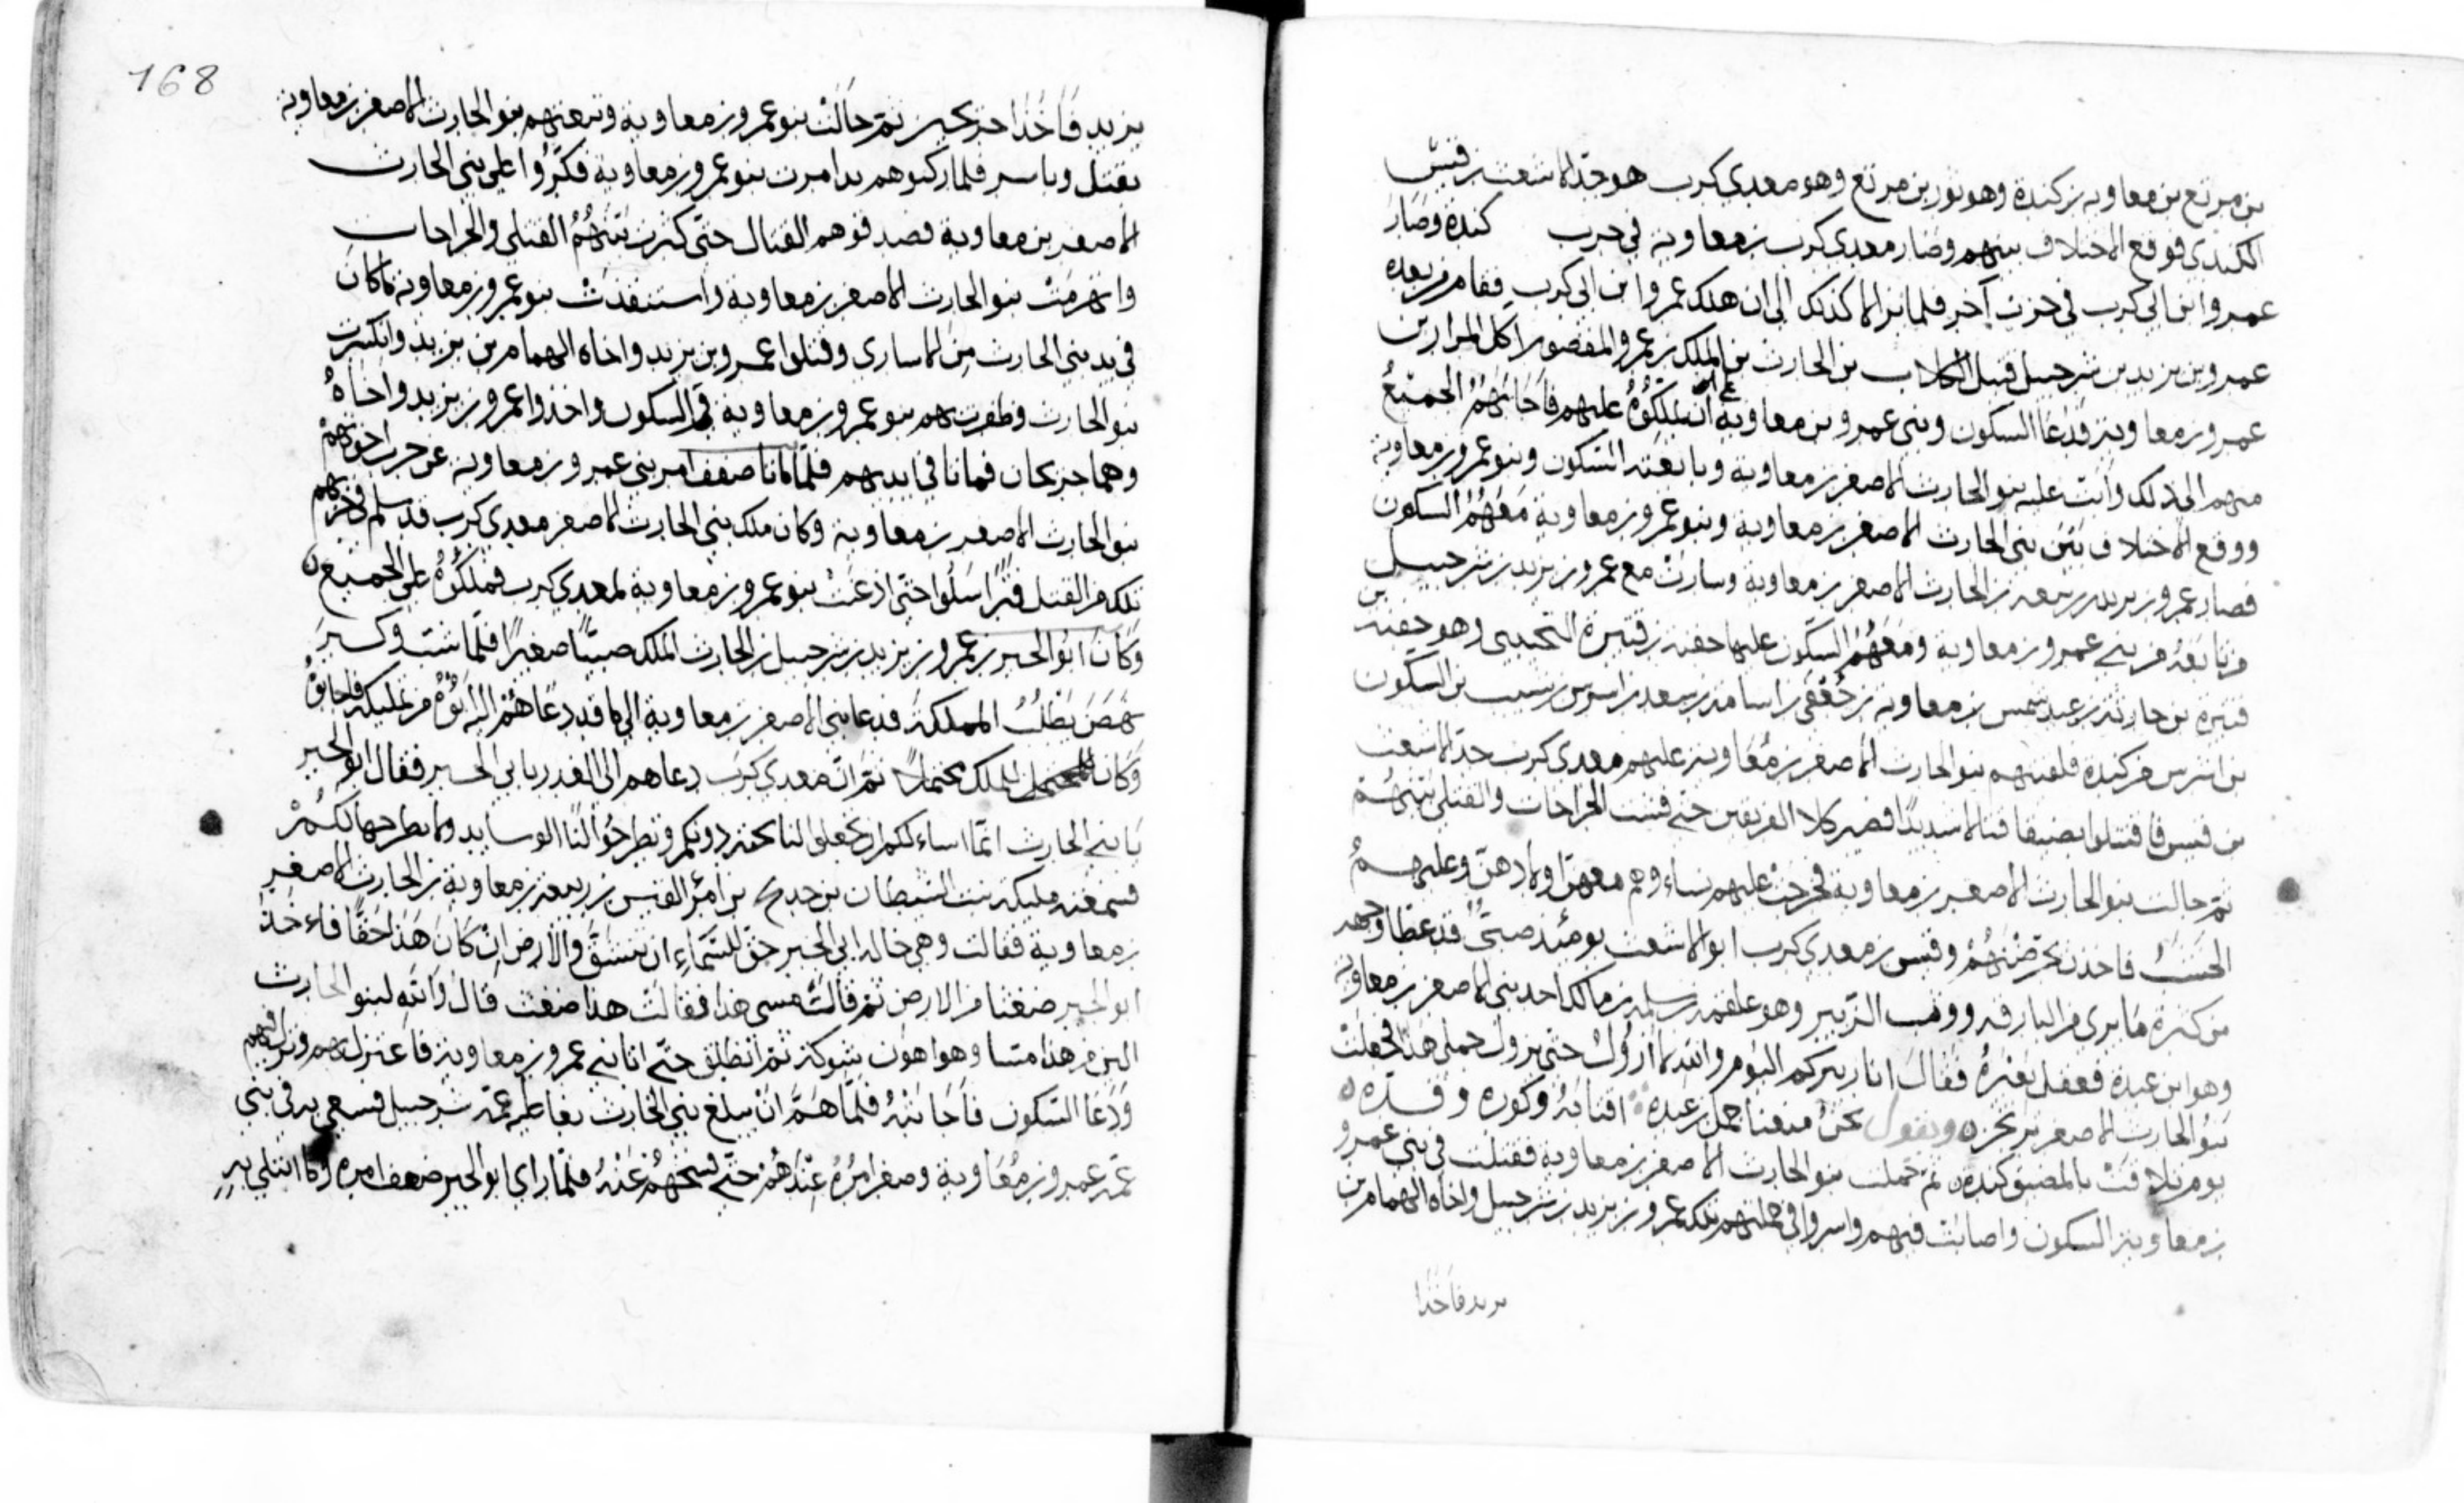 بن مرتع بن معاويه بن كندة وهو ثور بن مرتع وهو معدي كرب هو جد الاشعث بن قيس
الكندي فوقع الاختلاف بينهم وصار معدي كرب بن معاوية في حرب كندة وصار
عمرو ابن ابي كرب في حزب آخر فلم يزالا كذلك الى ان هلك عمرو ابن ابي كرب فقام من بعده
عمرو بن يزيد بن شرحبيل قتيل الكلاب بن الحارث بن الملك بن عمرو المقصور بن آكل المرار بن
عمرو بن معاوية فدعا السكون وبني عمرو بن معاوية على ان يملكوه عليهم فاجابهم الجميع
منهم الى ذلك وأبت عليه بنو الحارث الاصغر بن معاوية وبايعته السكون وبنو عمرو بن معاوية
ووقع الاختلاف بين بني الحارث الاصغر بن معاوية وبنو عمرو بن معاوية معهم السكون
فصار عمرو بن يزيد بن ربيعه بن الحارث الاصغر بن معاوية وسارت مع عمرو بن يزيد بن شرحبيل بن
من بايعه من بني عمرو بن معاوية ومعهم السكون عليها حفنه بن قتيرة التجيبي وهو حفنه
قتيره بن حارثة بن عبد شمس بن معاويه بن جعفي بن اسامه بن سعد بن اشرس بن شبيب بن السكون
بن اشرس من كنده فلقيتهم بنو الحارث الاصغر بن معاوية عليهم معدي كرب جد الاشعث
بن قيس فاقتتلوا بضيقا قتالا شديدا فصبر كلا الفريقين حتى فشت الجراحات والقتلى بينهم
ثم جالت بنو الحارث الاصغر بن معاوية فخرجت عليهم نساءهم معهن اولادهن وعليهم
فاخذن يحرضنهم وقيس بن معدي كرب ابو الاشعث يومئذ صبي قد غطا وجهه
من كثرة ما يرى من البارقه ووقب الزبير وهو علقمه بن سلمه بن مالك احد بني الاصغر بن معاوية
وهو ابن عبدة فعقل بعيره فقال انا ربيركم اليوم والله لا ازول حتى يزول جملي هذا فجعلت
بنو الحارث الاصغر ترتجز ويقول نحن منعنا جمل بن عبده اقتابه وكوره وقده
يوم تلاقت بالمضيق كنده ثم حملت بنو الحارث الاصغر بن معاوية فقتلت في بني عمرو
بن معاوية السكون واصابت فيهم واسروا في حملتهم تلك عمرو بن يزيد بن شرحبيل واخاه الهمام بن
يزيد فاخذا
168
يزيد فاخذا جريحين ثم جالت بنو عمرو بن معاوية وتبعتهم بنو الحارث الاصغر بن معاوية
بقتل وياسر فلما ركبوهم تدامرت بنو عمرو بن معاوية فكروا على بني الحارث
الاصغر بن معاوية فصدقوهم القتال حتى كثرت بينهم القتلى والجراحات
وانهزمت بنو الحارث الاصغر بن معاوية واستنقذت بنو عمرو بن معاوية ما كان
في يد بني الحارث من الاسارى وقتلوا عمرو بن يزيد واخاه الهمام بن يزيد وانكسرت
بنو الحارث وظفرت بهم بنو عمرو بن معاوية في السكون واخذوا عمرو بن يزيد واخاه
وهما جريحان فماتا في ايديهم فلما ماتا ضعف امر بني عمرو بن معاوية عن حرب اخوتهم
بنو الحارث الاصغر بن معاوية وكان ملك بني الحارث الاصغر معدي كرب قد سلم في حربهم
تلك من القتل فتراسلوا حتى اذعنت بنو عمرو بن معاوية لمعدي كرب فملكوه على الجميع
وكان ابو الخير بن عمرو بن يزيد بن شرحبيل بن الحارث الملك صبيا صغيرا فلما شب وكبر
نهض يطلب المملكة فدعا بني الاصغر بن معاوية الى ما قد دعاهم اليه ابوه من تمليكه فاجابوه
وكان الملك محتملا ثم ان معدي كرب دعاهم الى الغدر بابي الخير فقال ابو الخير
يا بني الحارث انما اساءكم ان تجعلوا لنا تحته دونكم وتطرحوا لنا الوسايد ولا نطرحها لكم
فسمعته مليكه بنت الشيطان بن خديج بن امرؤ القيس بن ربيعة بن معاوية بن الحارث الاصغر
بن معاوية فقالت وهي خاله ابي الخير حق للسماء ان تنشق والارض ان كان هذا حقا فاخذ
ابو الخير ضغثا من الارض ثم قالت مسي هذا فقالت هذا ضغث قال والله لبنو الحارث
الين من هذا متسا وهو اهون شوكة ثم انطلق حتى اتا بني عمرو بن معاوية فاعتزل بهم ونزل فيهم
ودعا السكون فاجابته فلما هم ان يبلغ بني الحارث بغا عليه عمه شرحبيل فسعى به في بني
عمه عمرو بن معاوية وصغر امره عندهم حتى فسخهم عنه فلما راى ابو الخير ضعف امره وما ابتلي به